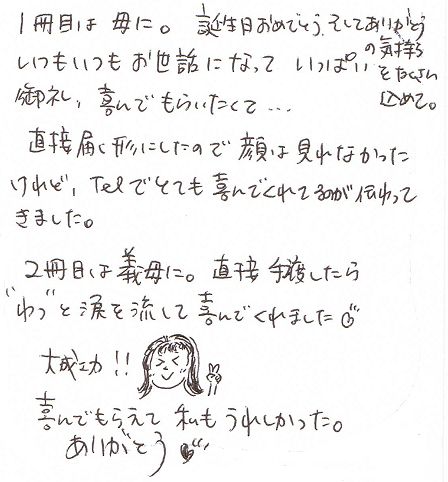 1冊目は 母に。 誕生日おめでとう、そしてありがとう
の気持ちをたくさん込めて。
いつもいつも お世話になって いっぱい
御礼、喜んでもらいたくて…
直接届く形にしたので 顔は見れなかった
けれど、Telでとても喜んでくれてるのが伝わって
きました。
2冊目は義母に。直接手渡したら
"わっ"と涙を流して喜んでくれました
大成功!!
喜んでもらえて 私もうれしかった。
ありがとう